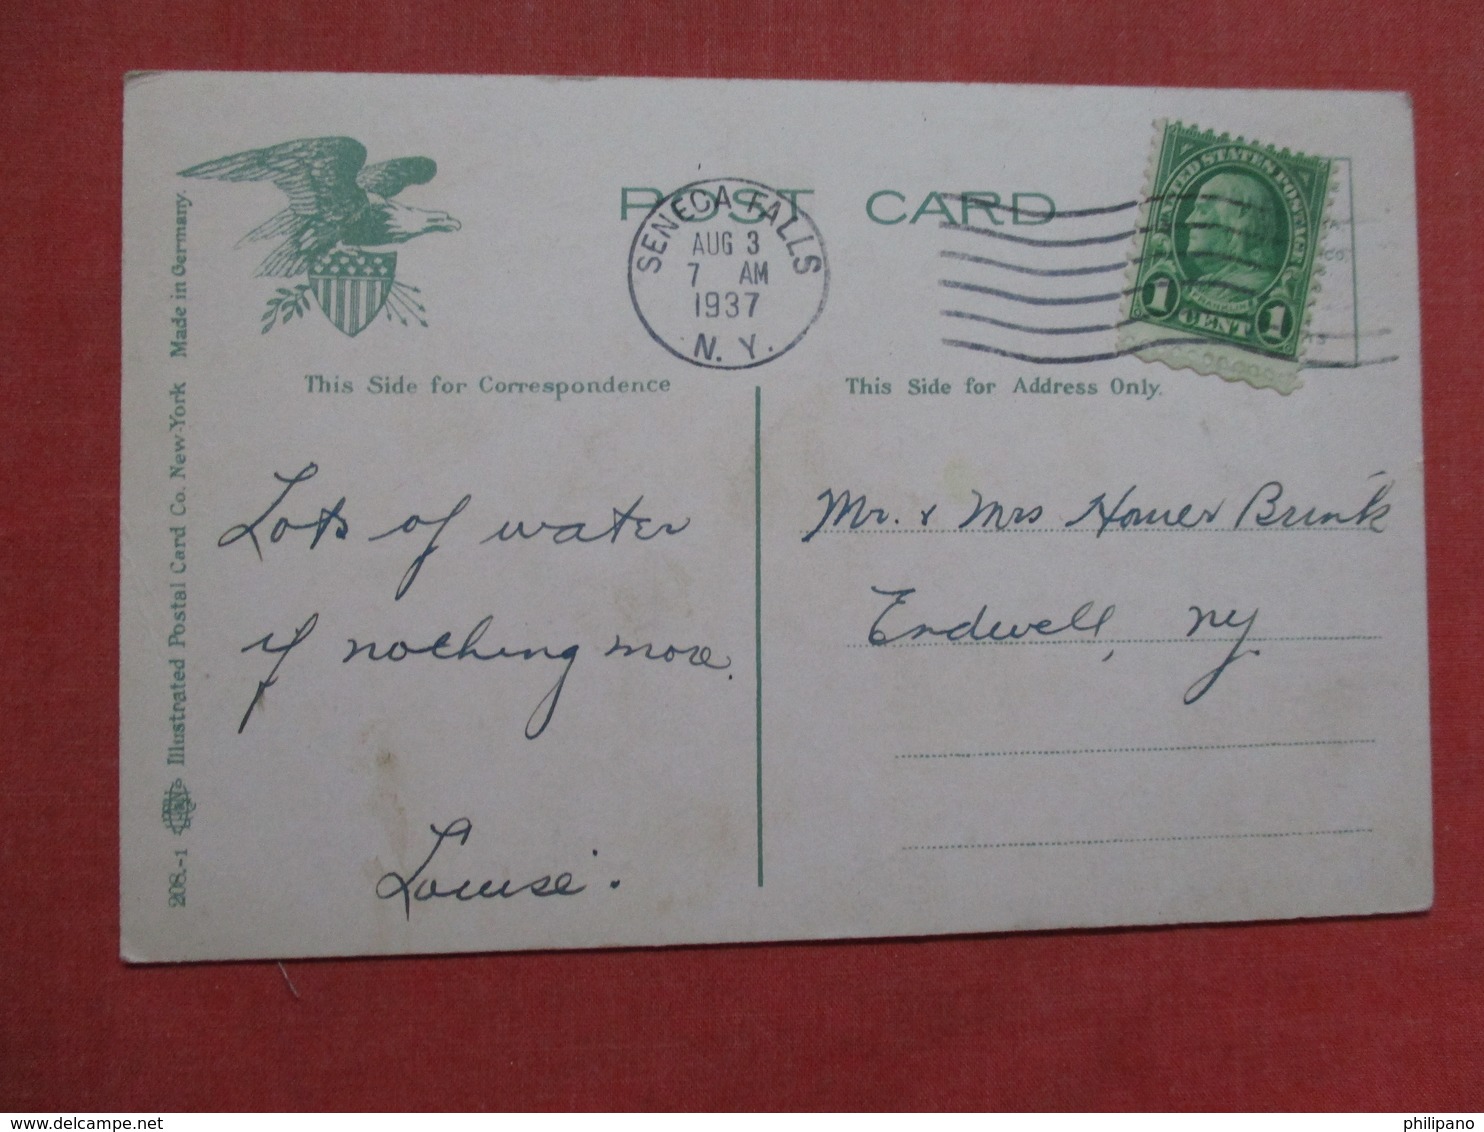 POST CARD
SENECA FALLS
AUG 3
7 AM
1937
N. Y.
UNITED STATES POSTAGE
FRANKLIN
1 CENT 1
This Side for Correspondence
This Side for Address Only.
Lots of water
if nothing more.
Louise.
Mr. & Mrs Homer Brink
Endwell, NY.
208.-1 Illustrated Postal Card Co. New-York Made in Germany.
www.delcampe.net
philipano